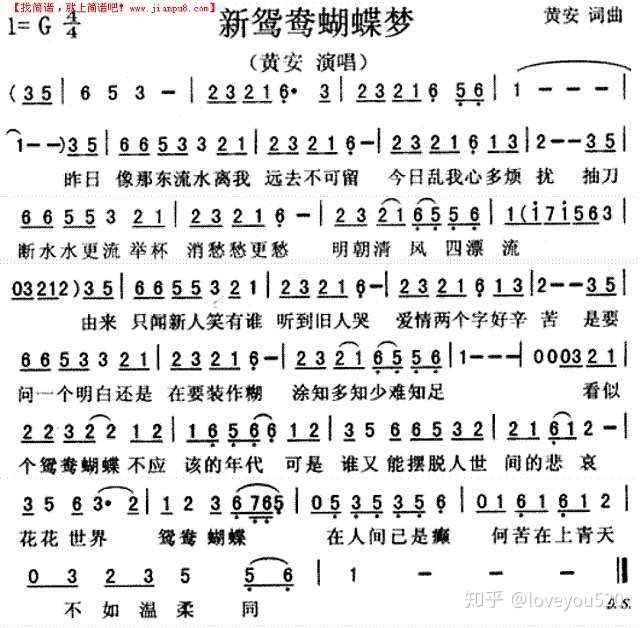 【找简谱，就上简谱吧！www.jianpu8.com】
1=G 4/4
新鸳鸯蝴蝶梦
黄安 词曲
（黄安 演唱）
( 3 5 | 6 5 3 － | 2 3 2 1 6· 3 | 2 3 2 1 6 5 6 | 1 － －
1 － － ) 3 5 | 6 6 5 5 3 3 2 1 | 2 3 2 1 6 － | 2 3 2 2 1 6 1 3 | 2 － － 3 5 |
昨日 像那东流水离我 远去不可留 今日乱我心多烦 扰 抽刀
6 6 5 5 3 2 1 | 2 3 2 2 1 6 － | 2 3 2 1 6 5 5 6 | 1 ( i 7 i 5 6 3
断水水更流 举杯 消愁愁更愁 明朝清 风 四漂 流
0 3 2 1 2 ) 3 5 | 6 6 5 5 3 2 1 | 2 3 2 2 1 6 － | 2 3 2 2 1 6 1 3 | 2 － － 3 5
由来 只闻新人笑有谁 听到旧人哭 爱情两个字好辛 苦 是要
6 6 5 5 3 3 2 1 | 2 3 2 2 1 6 － | 2 3 2 1 6 5 5 6 | 1 － － － | 0 0 0 3 2 1
问一个明白还是 在要装作糊 涂知多知少难知足 看似
2 2 3 2 2 | 1 6 5 6 6 | 1 2 3 5 5 3 3 2 | 2 1 6 1 2 －
个鸳鸯蝴蝶 不应 该的年代 可是 谁又 能摆脱人世 间的悲 哀
3 5 6 3· 2 | 1 2 3 6 7 6 5 | 0 5 3 5 3 5 | 0 1 6 1 6 1 2
花花 世界 鸳鸯 蝴蝶 在人间已是癫 何苦在上青天
0 3 2 3 5 5 6 | 1 － － －
不如温柔 同
D.S.
知乎 @loveyou520s